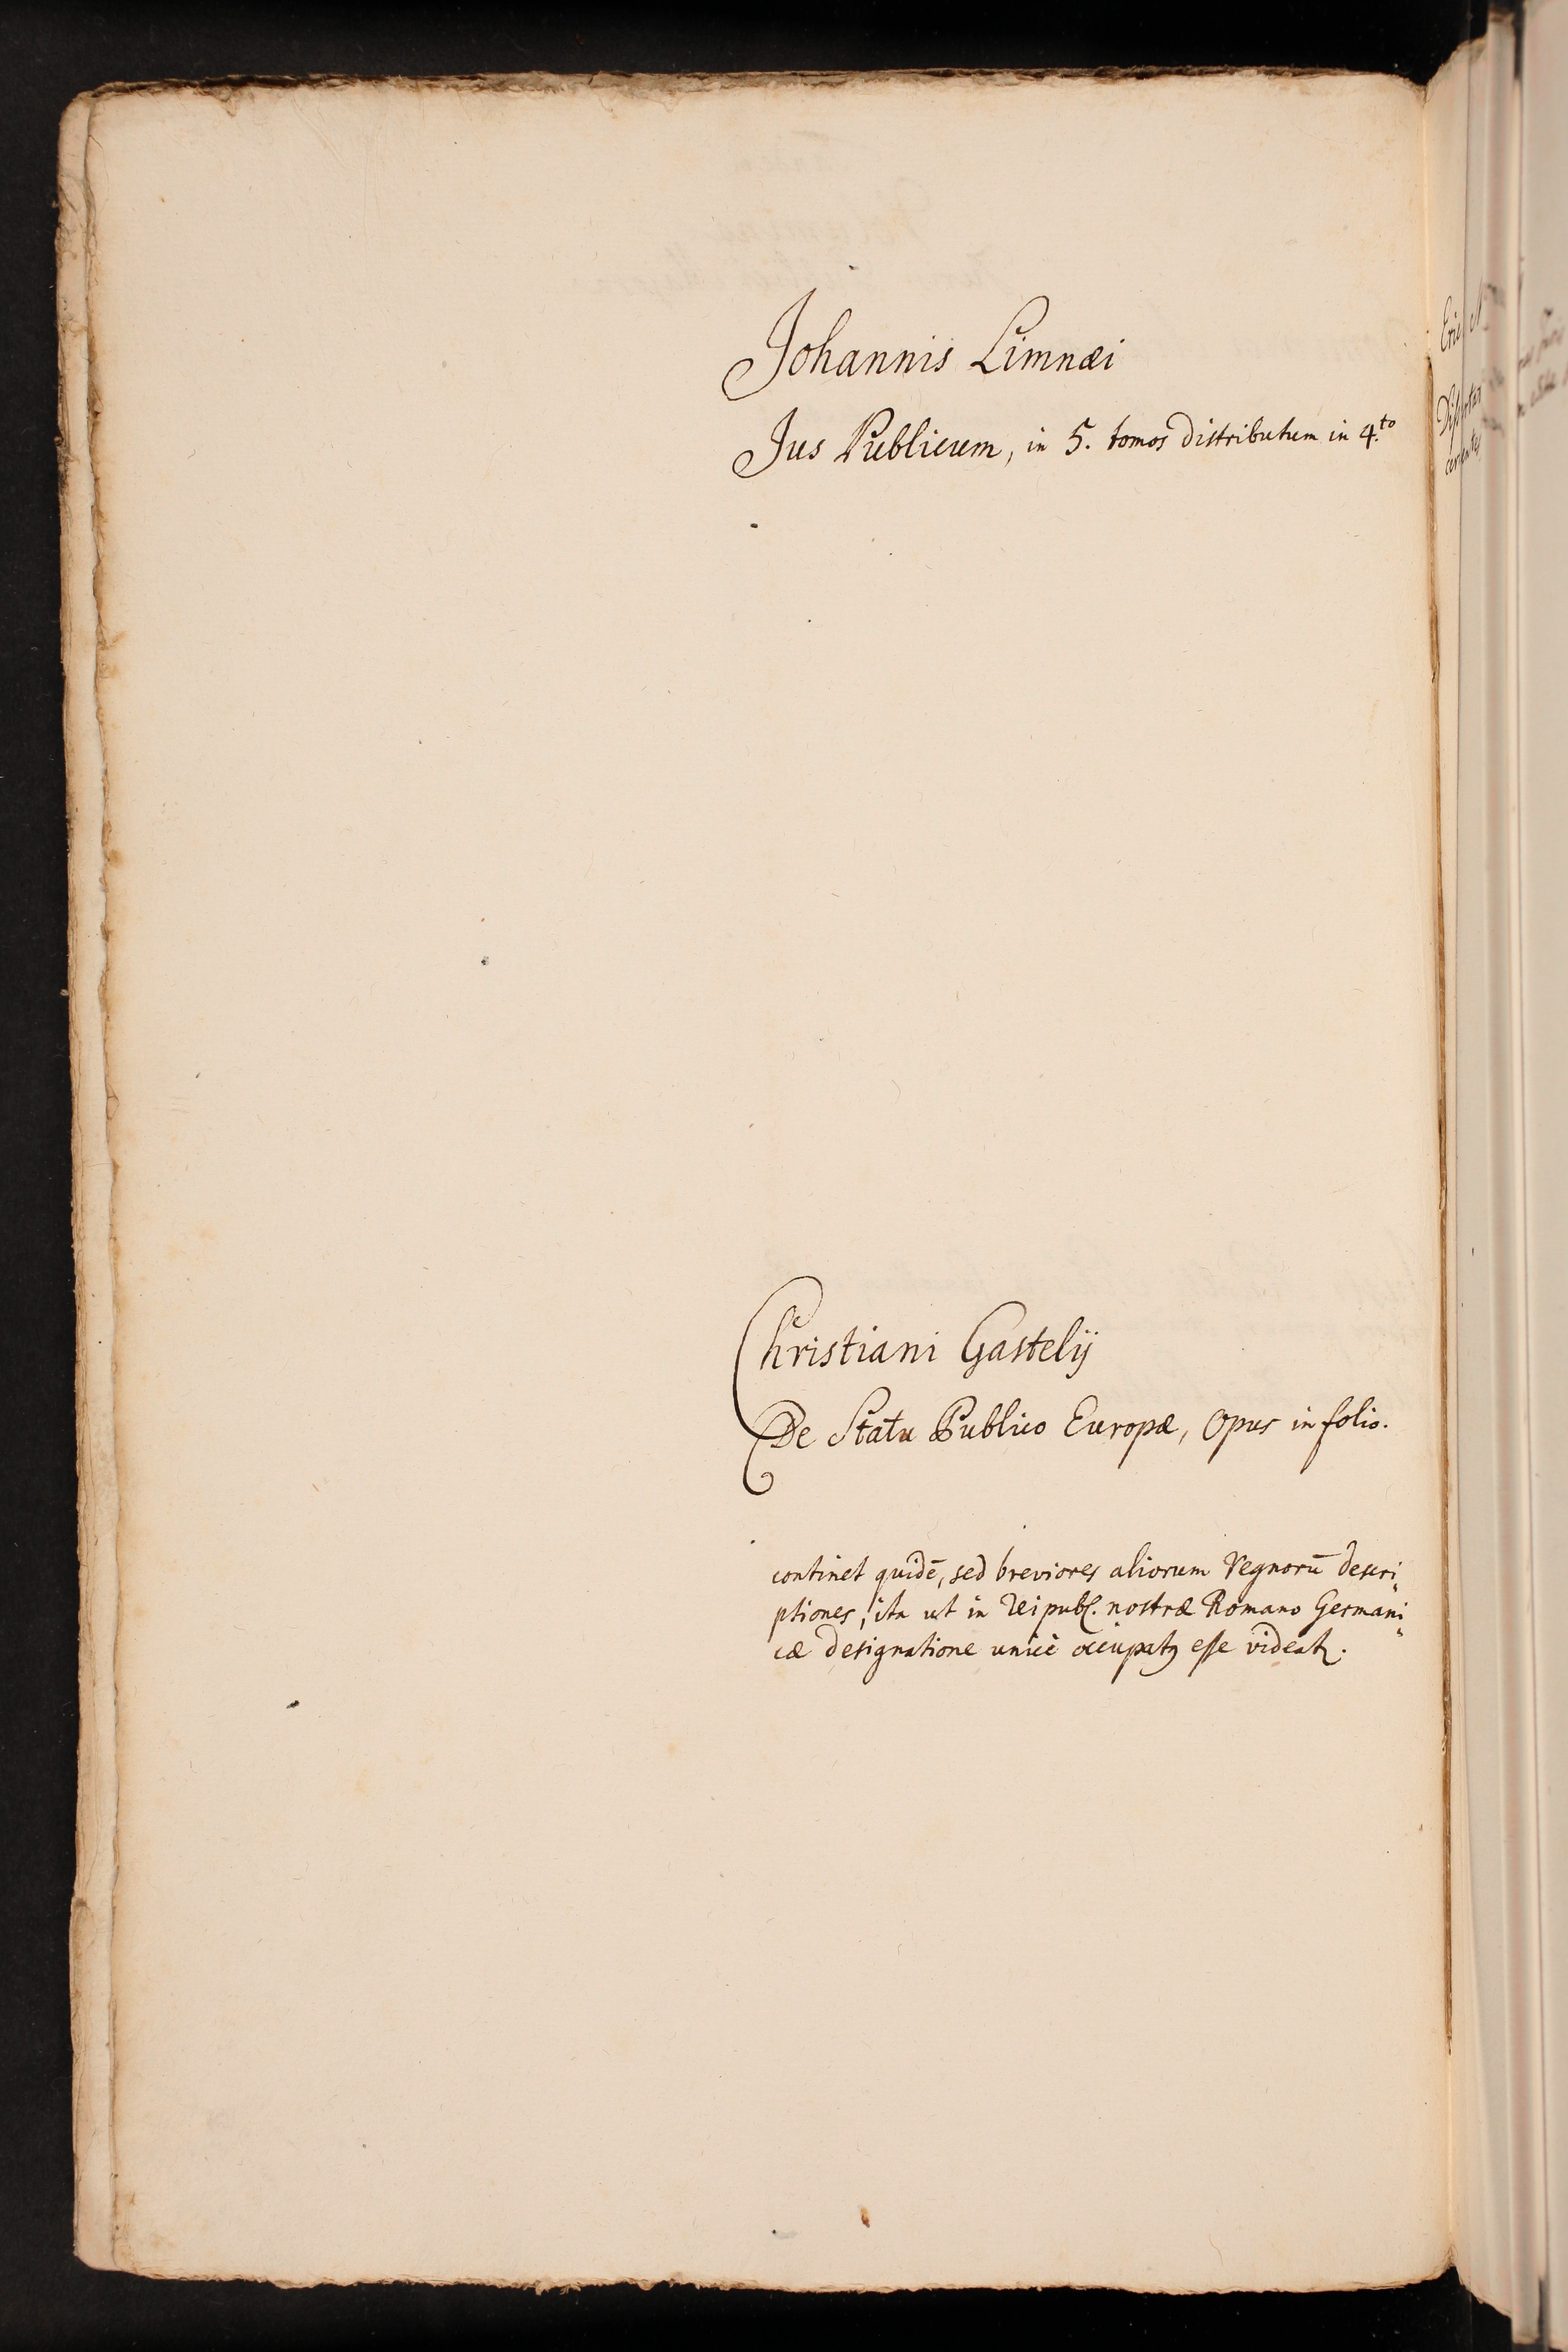 Johannis Limnæi
Jus Publicum, in 5. tomos distributum in 4.to
Christiani Gastelij
De Statu Publico Europæ, Opus in folio.
continet quidē, sed breviores aliorum Regnorū descri„
ptiones, ita ut in Reipubl. nostræ Romano Germani„
cæ designatione unicè occupatꝫ esse videatꝛ.